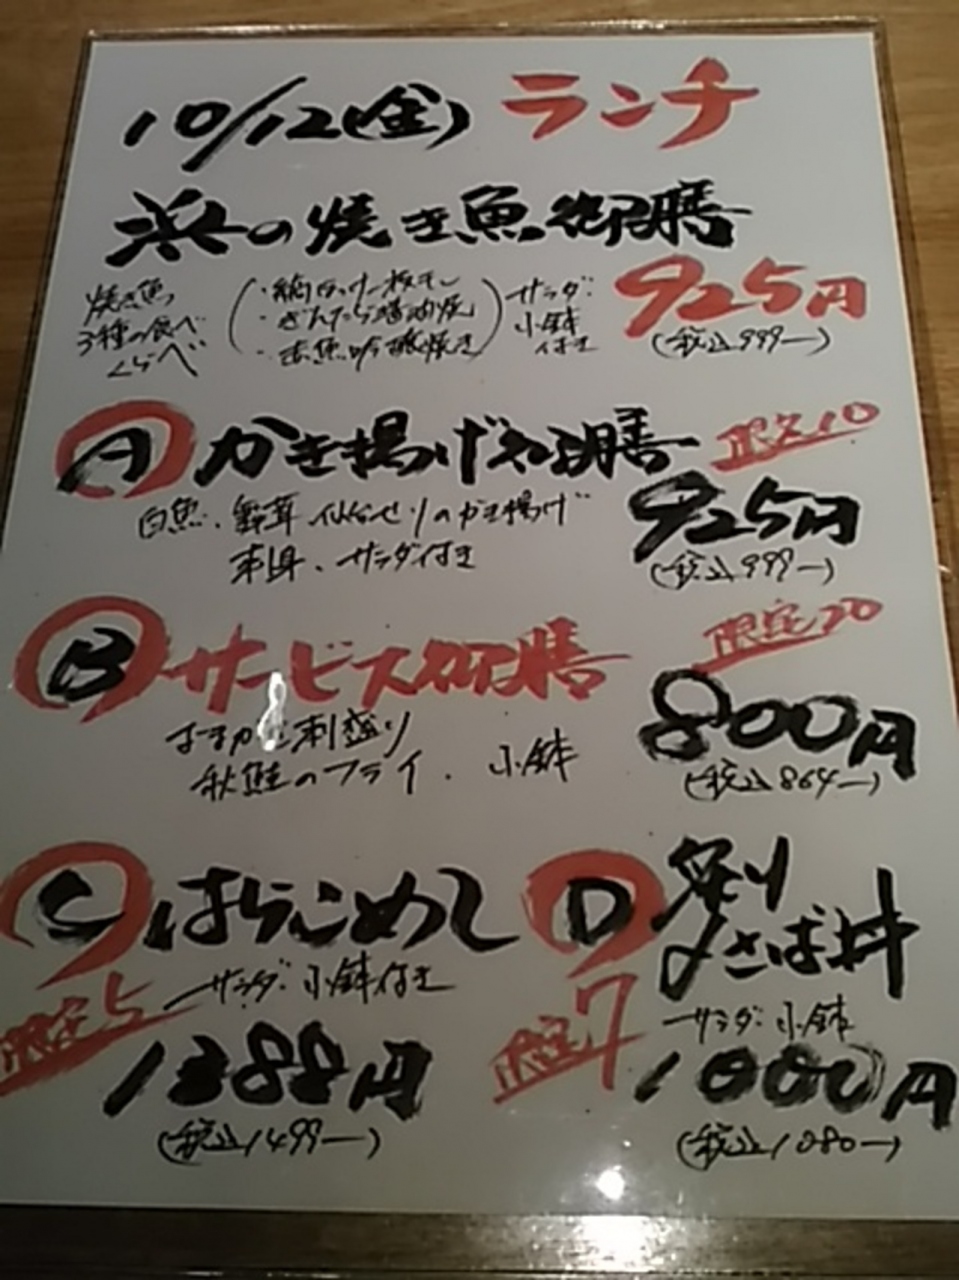 10/12(金) ランチ
浜の焼き魚御膳
焼き魚
3種の食べ
くらべ
・ぎんだら醤油焼
・赤魚 磯焼き
サラダ・
小鉢
付き
925円
(税込999ー)
A かき揚げ御膳 限定10
白魚、舞茸 仙台せりのかき揚げ
刺身、サラダ付き
925円
(税込999ー)
B サービス御膳 限定20
刺盛り
秋鮭のフライ、小鉢
800円
(税込864ー)
C はらこめし
サラダ・小鉢付き
限定5
1388円
(税込1499ー)
D
〆さば丼
サラダ・小鉢
限定7
1000円
(税込1080ー)